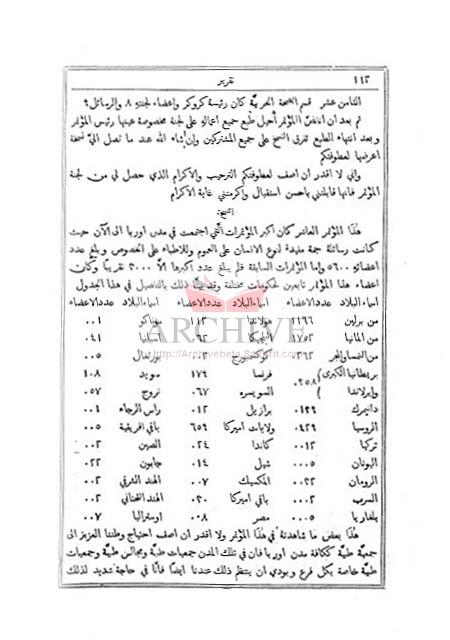 ١١٢ تقرير
الثامن عشر قسم الصحة الحربيّة كان رئيسهُ كروكر واعضاء لجنتهِ ٨ والرسائل ٤
ثم بعد ان انفضّ المؤتمر أُحيل طبع جميع اعمالهِ على لجنة مخصوصة عينها رئيس المؤتمر
وبعد انتهاء الطبع تفرق النسخ على جميع المشتركين وإن شاء الله عند ما تصل اليّ نسخة
اعرضها لعطوفتكم
واني لا اقدر ان اصف لعطوفتكم الترحيب والاكرام الذي حصل لي من لجنة
المؤتمر فانها قابلتني باحسن استقبال واكرمتني غاية الاكرام
هذا المؤتمر العاشر كان أكبر المؤتمرات التي اجتمعت في مدن اوربا الى الآن حيث
كانت رسائلهُ جمة مفيدة لنوع الانسان على العموم وللاطباء على الخصوص وبلغ عدد
اعضائهِ ٥٦٠٠ واما المؤتمرات السابقة فلم يبلغ عدد اكبرها الاّ ٣٠٠٠ تقريبًا وكان
اعضاء هذا المؤتمر تابعين لحكومات مختلفة بالتفصيل في هذا الجدول
اسماء البلاد عدد الاعضاء اسماء البلاد عدد الاعضاء اسماء البلاد عدد الاعضاء
من برلين ١١٦٦ هولاندا ١١٢ موناكو ٠٠١
من المانيا ١٧٥٢ البلجيكا ٠٤١
من النمسا والمجر ٢٦٢ لوكسمبورج البورتغال ٠٠٥
بريطانيا الكبرى فرنسا ١٧٩ سويد ١٠٨
وايرلاندا ٣٥٨ السويسره ٠٦٧ نروج ٠٥٧
دانيمرك ٠١٣٩ برازيل ٠١٢ راس الرجاء ٠٠١
الروسيا ٠٤٢٩ ولايات اميركا ٦٥٩ باقي افريقية ٠٠٥
تركيا ٠٠١٢ كاندا ٠٢٤ الصين ٠٠٢
اليونان ٠٠٠٥ شيلي ٠١٤ جابون ٠٢٢
الرومان ٠٠٢٢ المكسيك ٠٠٧ الهند الشرقي ٠٠٢
السرب ٠٠٠٢ باقي اميركا ٠٢٠ الهند التحتاني ٠٠٢
بلغاريا ٠٠٠٥ مصر ٠٠٨ اوستراليا ٠٠٧
هذا بعض ما شاهدتهُ في هذا المؤتمر ولا اقدر ان اصف احتياج وطننا العزيز الى
جمعية طبيّة ككافة مدن اوربا فان في تلك المدن جمعيات طبيّة ومجالس طبيّة وجمعيات
طبيّة خاصة بكل فرع وبودي ان ينتظم ذلك عندنا ايضًا فأنّا في حاجة شديدة لذلك
ARCHIVE
http://Archivebeta.Sakhrit.com